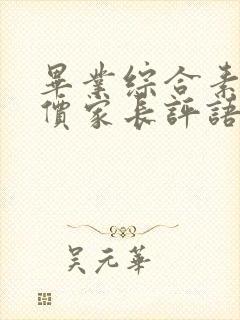 畢業綜合素
價家長評語
吳元華